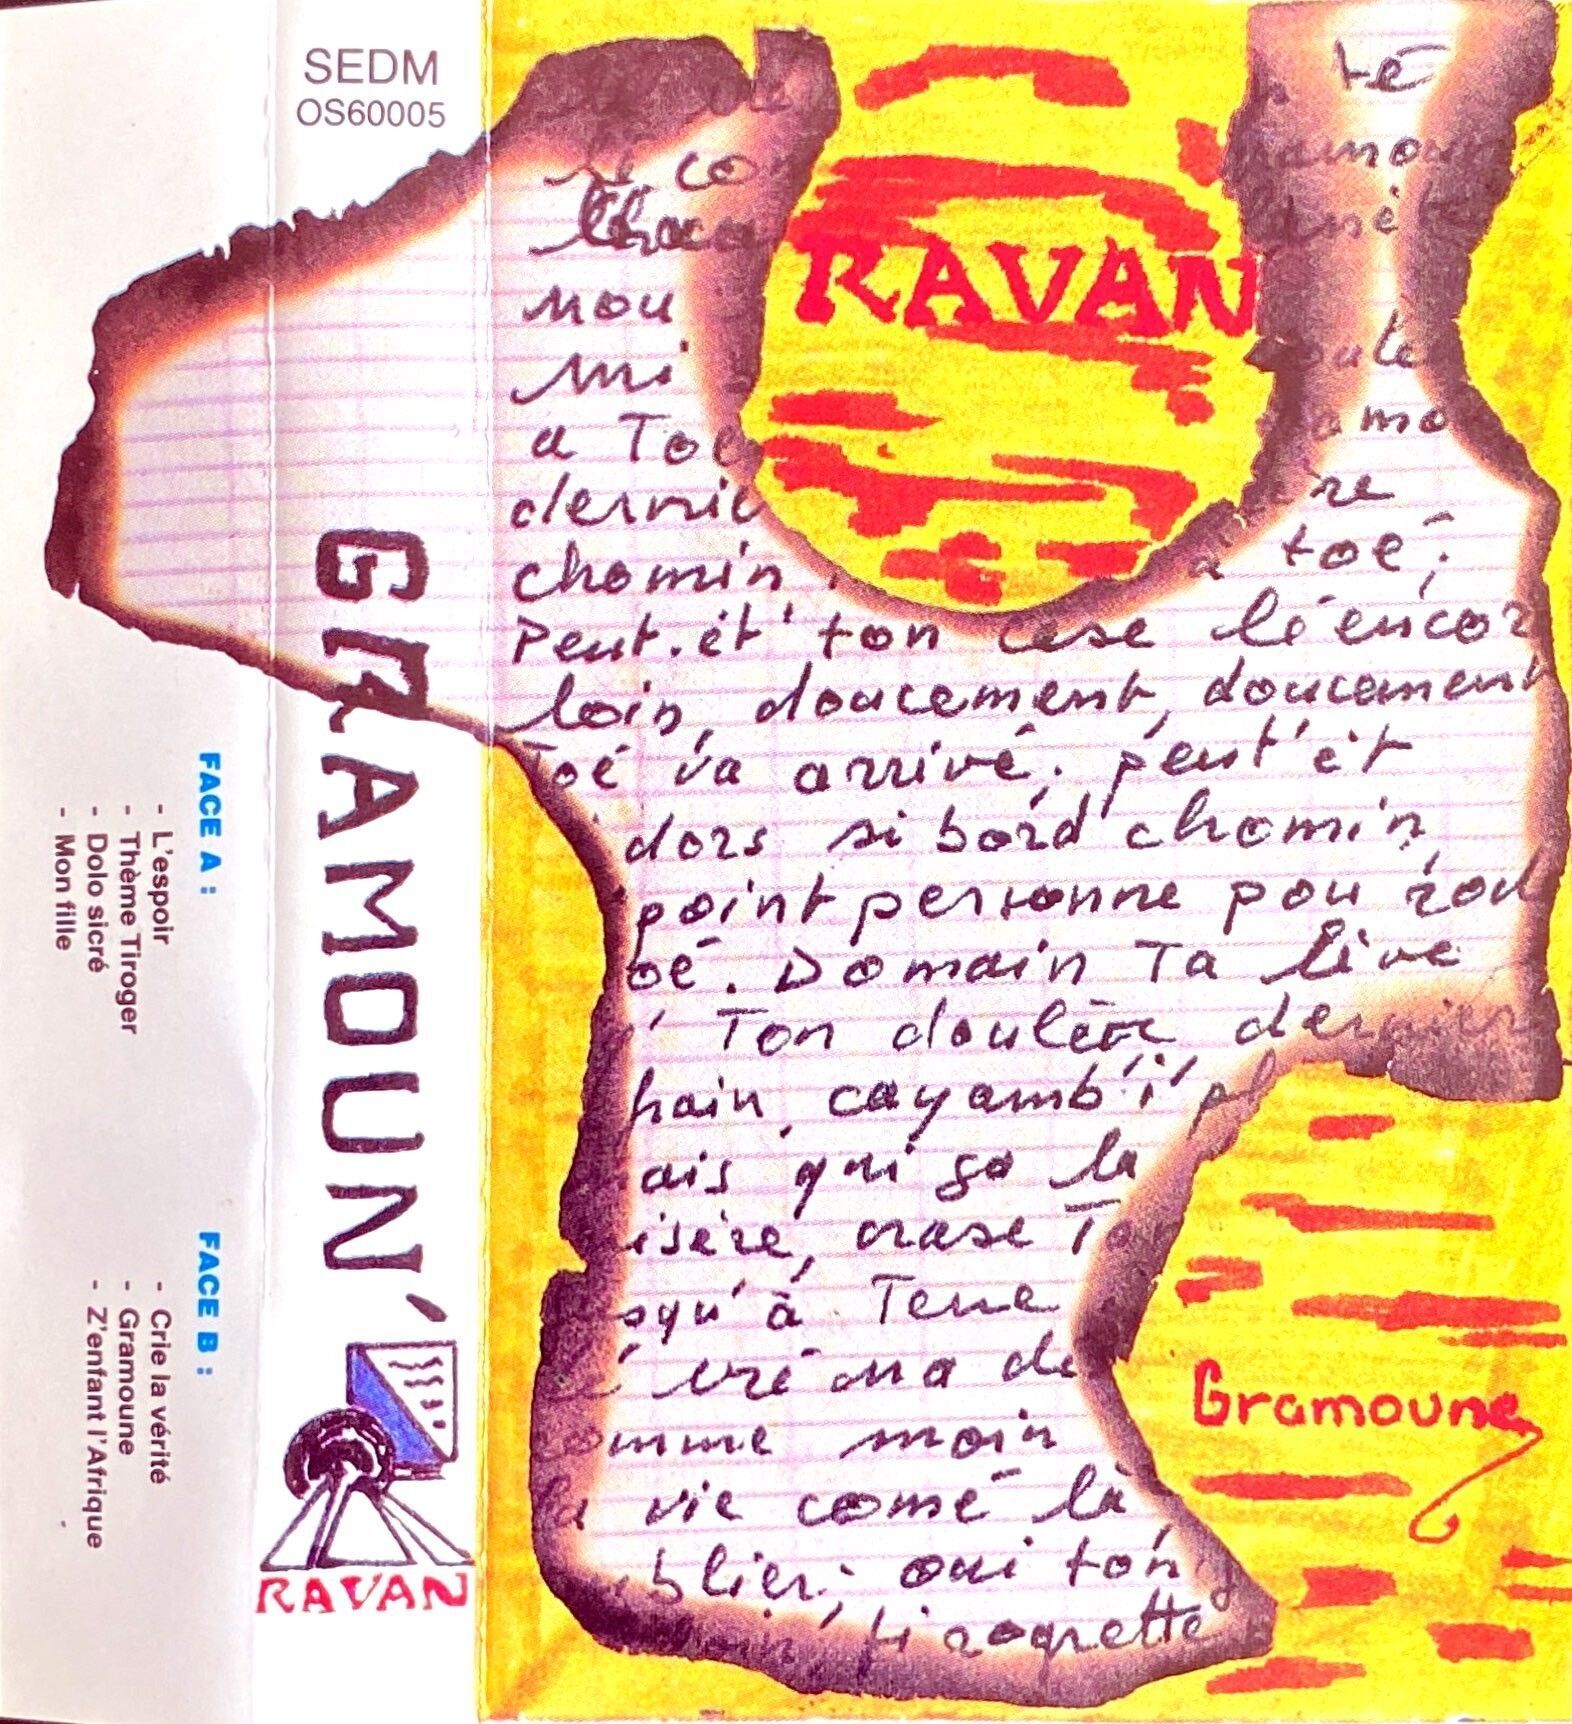 SEDM
OS60005
GRAMOUN'
RAVAN
FACE A :
- L'espoir
- Thème Tiroger
- Dolo sicré
- Mon fille
FACE B :
- Crie la vérité
- Gramoune
- Z'enfant l'Afrique
RAVAN
Gramoune
té
nou
mi
a Toé
dernié
chomin
toé;
Peut.êt' ton case lé encor
loin, doucement, doucement
Toé va arrivé. peut'êt
dors si bord chomin,
point personne pou rod
oé. Domain Ta live
Ton doulère dernier
hain, cayamb'i'
ais qui so la
isère, crase
squ'à Terre
vré
comme moin
la vie comé là
blier; oui ton
ti roqrette